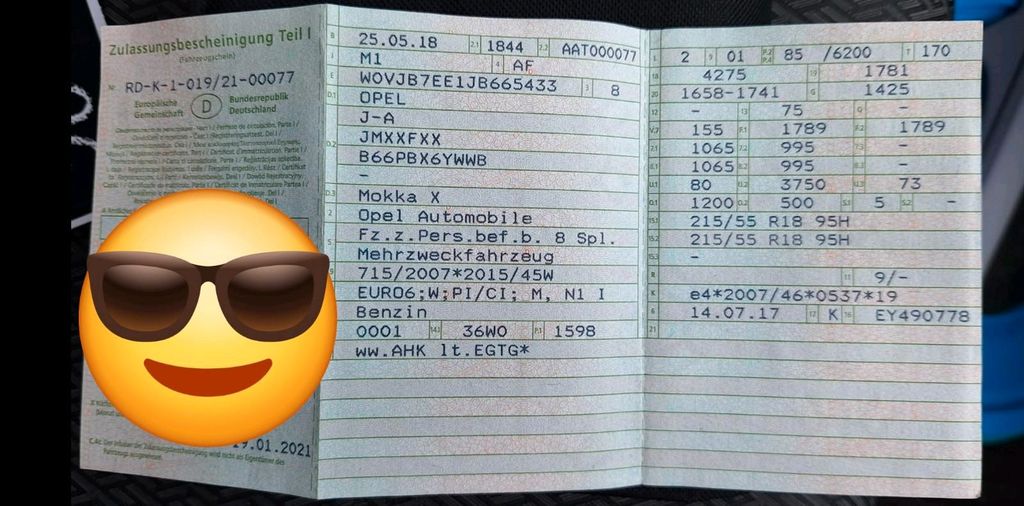 Zulassungsbescheinigung Teil I
(Fahrzeugschein)
Nr. RD-K-1-019/21-00077
Europäische Gemeinschaft D Bundesrepublik Deutschland
19.01.2021
B 25.05.18 2.1 1844 2.2 AAT000077
J M1 4 AF
E W0VJB7EE1JB665433 3 8
D.1 OPEL
J-A
D.2 JMXXFXX
B66PBX6YWWB
-
D.3 Mokka X
2 Opel Automobile
5 Fz.z.Pers.bef.b. 8 Spl.
Mehrzweckfahrzeug
715/2007*2015/45W
EURO6;W;PI/CI; M, N1 I
Benzin
0001 14.1 36W0 P.1 1598
ww.AHK lt.EGTG*
L 2 9 01 P.2 P.4 85 /6200 T 170
18 4275 19 1781
20 1658-1741 G 1425
12 - 13 75 Q -
V.7 155 F.1 1789 F.2 1789
7.1 1065 7.2 995 7.3 -
8.1 1065 8.2 995 8.3 -
U.1 80 U.2 3750 U.3 73
O.1 1200 O.2 500 S.1 5 S.2 -
15.1 215/55 R18 95H
15.2 215/55 R18 95H
15.3 -
R 11 9/-
K e4*2007/46*0537*19
6 14.07.17 17 K 16 EY490778
21